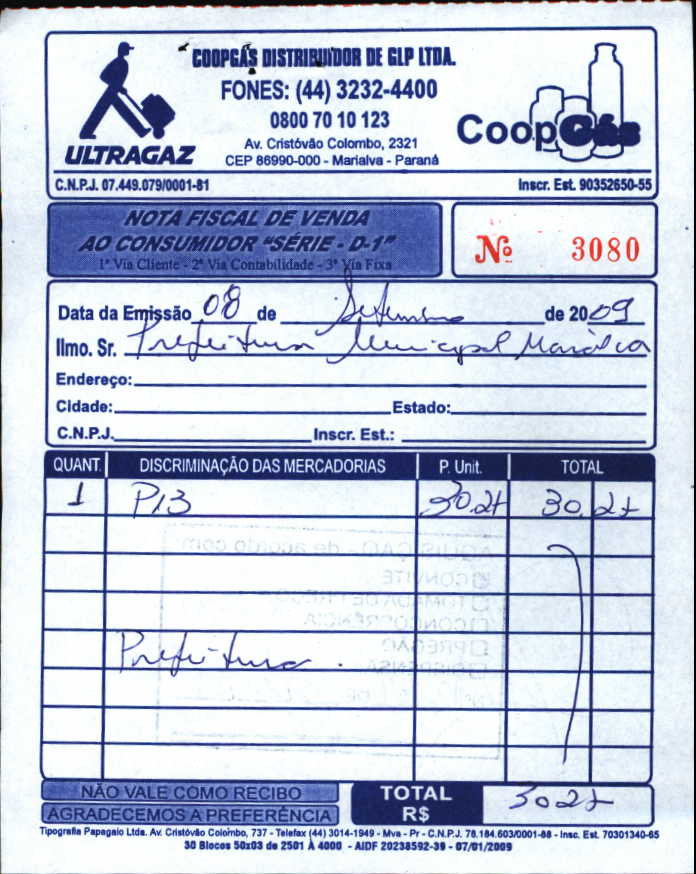 COOPGÁS DISTRIBUIDOR DE GLP LTDA.
FONES: (44) 3232-4400
0800 70 10 123
Av. Cristóvão Colombo, 2321
CEP 86990-000 - Marialva - Paraná
ULTRAGAZ
CoopGás
C.N.P.J. 07.449.079/0001-81 Inscr. Est. 90352650-55
NOTA FISCAL DE VENDA
AO CONSUMIDOR "SÉRIE - D-1"
1ª Via Cliente - 2ª Via Contabilidade - 3ª Via Fixa
Nº 3080
Data da Emissão 08 de Setembro de 2009
Ilmo. Sr. Prefeitura Municipal Marialva
Endereço:
Cidade: Estado:
C.N.P.J. Inscr. Est.:
QUANT. DISCRIMINAÇÃO DAS MERCADORIAS P. Unit. TOTAL
1 P13 30.27 30.27
AQUISIÇÃO - de acordo com:
CONVITE
TOMADA DE PREÇO
CONCORRÊNCIA
PREGÃO
DISPENSA
Prefeitura.
NÃO VALE COMO RECIBO
AGRADECEMOS A PREFERÊNCIA
TOTAL R$ 3027
Tipografia Papagaio Ltda. Av. Cristóvão Colombo, 737 - Telefax (44) 3014-1949 - Mva - Pr - C.N.P.J. 78.184.603/0001-88 - Insc. Est. 70301340-65
30 Blocos 50x03 de 2501 À 4000 - AIDF 20238592-39 - 07/01/2009